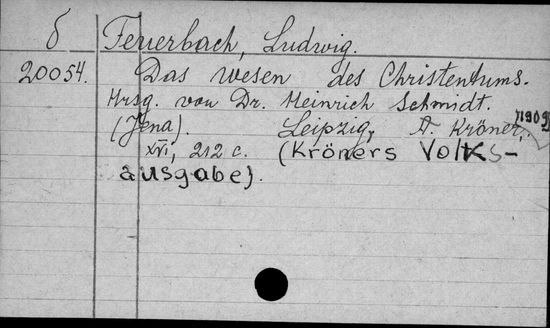 б Feuerbach, Ludwig.
20054. Das Wesen des Christentums.
Hrsg. von Dr. Heinrich Schmidt.
(Jena). Leipzig, A. Kröner, [1909].
XVI, 212 с. (Kröners Volks-
ausgabe).